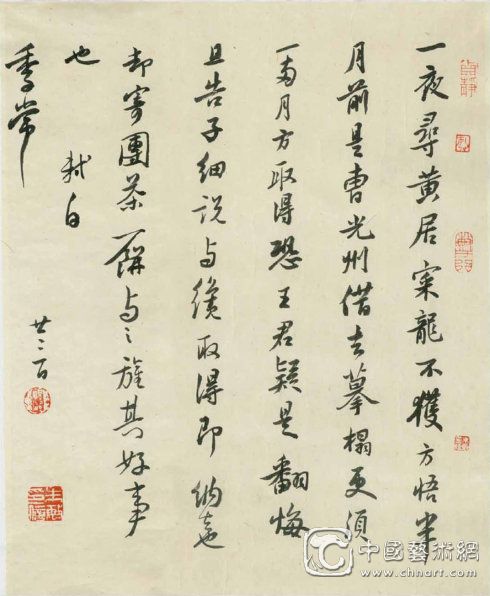 一夜尋黃居寀龍不獲方悟半
月前是曹光州借去摹搨更須
一兩月方取得恐王君疑是翻悔
且告子細說与纔取得即納去
却寄團茶一餅与之旌其好事
也 軾白
季常
廿三日
中國藝術網
www.chnart.com